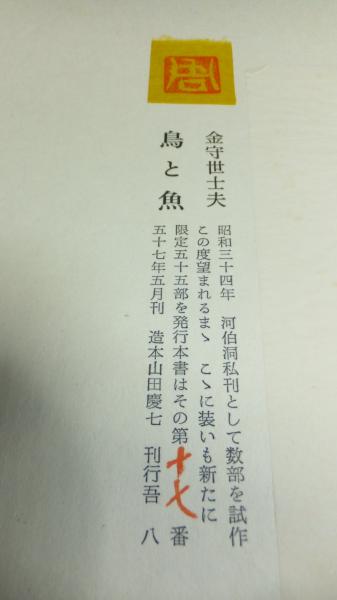 金守世士夫
鳥と魚
昭和三十四年 河伯洞私刊として数部を試作
この度望まれるまゝ こゝに装いも新たに
限定五十五部を発行本書はその第十七番
五十七年五月刊 造本山田慶七 刊行吾八